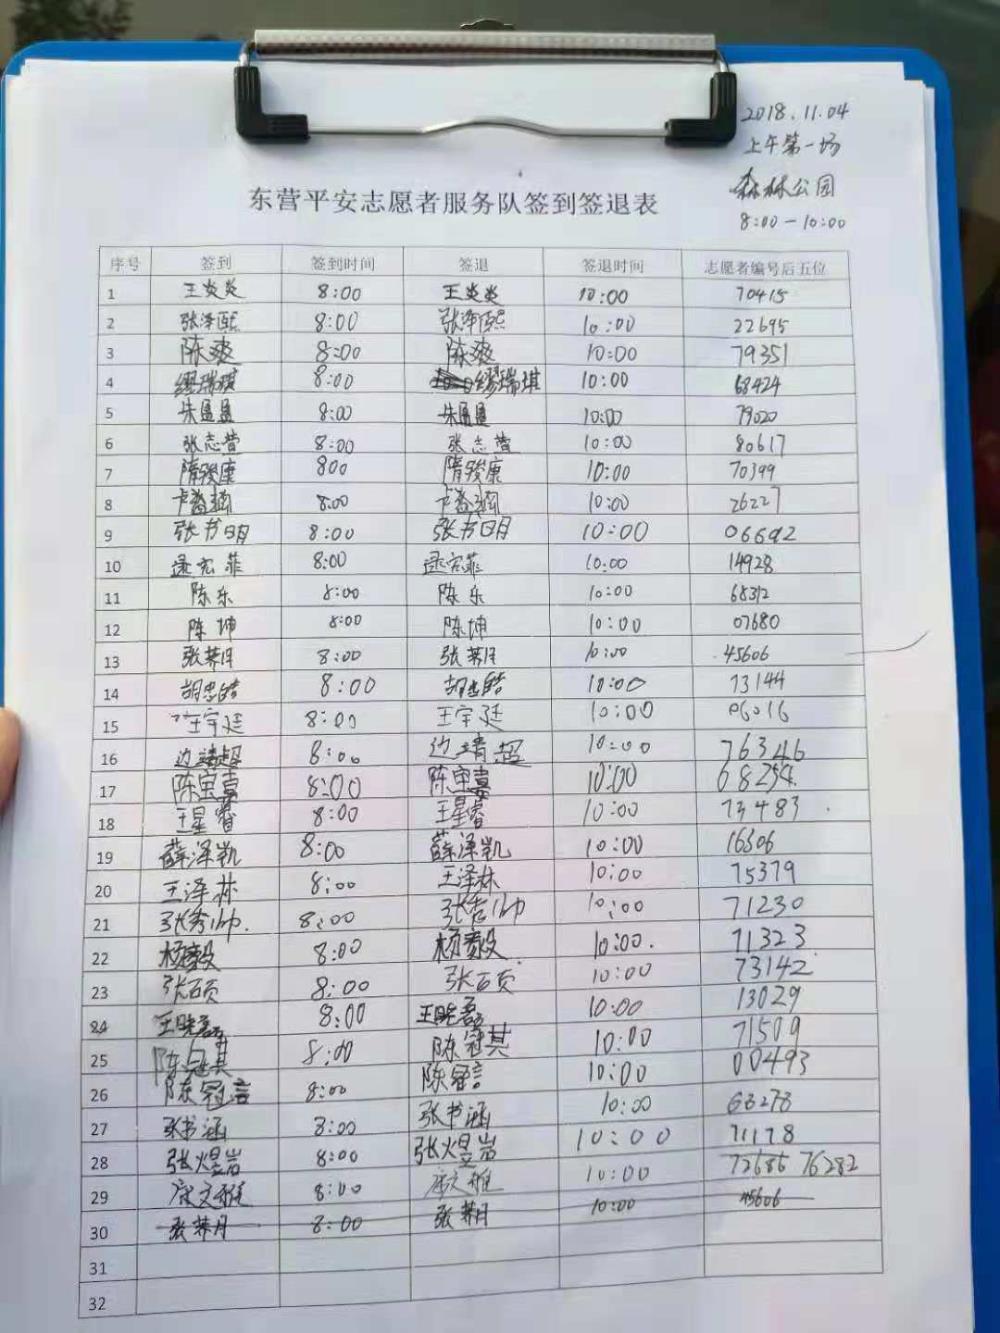 2018.11.04
上午第一场
森林公园
8:00-10:00
东营平安志愿者服务队签到签退表
序号 签到 签到时间 签退 签退时间 志愿者编号后五位
1 王炎炎 8:00 王炎炎 10:00 70415
2 张泽熙 8:00 张泽熙 10:00 22695
3 陈爽 8:00 陈爽 10:00 79351
4 缪瑞琪 8:00 缪瑞琪 10:00 68424
5 朱昷昷 8:00 朱昷昷 10:00 79020
6 张志营 8:00 张志营 10:00 80617
7 隋骏康 800 隋骏康 10:00 70399
8 8:00 10:00 26227
9 张书明 8:00 张书明 10:00 06692
10 逯宏菲 8:00 逯宏菲 10:00 14928
11 陈乐 8:00 陈乐 10:00 68312
12 陈坤 8:00 陈坤 10:00 07680
13 张荞月 8:00 张荞月 10:00 45606
14 胡忠皓 8:00 胡忠皓 10:00 73144
15 王宇廷 8:00 王宇廷 10:00 06016
16 边靖超 8:00 边靖超 10:00 76346
17 陈宝嘉 8:00 陈宝嘉 10:00 68254
18 王星睿 8:00 王星睿 10:00 73483
19 薛泽凯 8:00 薛泽凯 10:00 16306
20 王泽林 8:00 王泽林 10:00 75379
21 张秀帅 8:00 张秀帅 10:00 71230
22 杨毅 8:00 杨毅 10:00 71323
23 张硕 8:00 张硕 10:00 73142
24 王晓磊 8:00 王晓磊 10:00 13029
25 陈冠其 8:00 陈冠其 10:00 71509
26 陈冠言 8:00 陈冠言 10:00 00493
27 张书涵 8:00 张书涵 10:00 68278
28 张煜岩 8:00 张煜岩 10:00 71178
29 康文雅 8:00 康文雅 10:00 72686 76282
30 张荞月 8:00 张荞月 10:00 45606
31
32